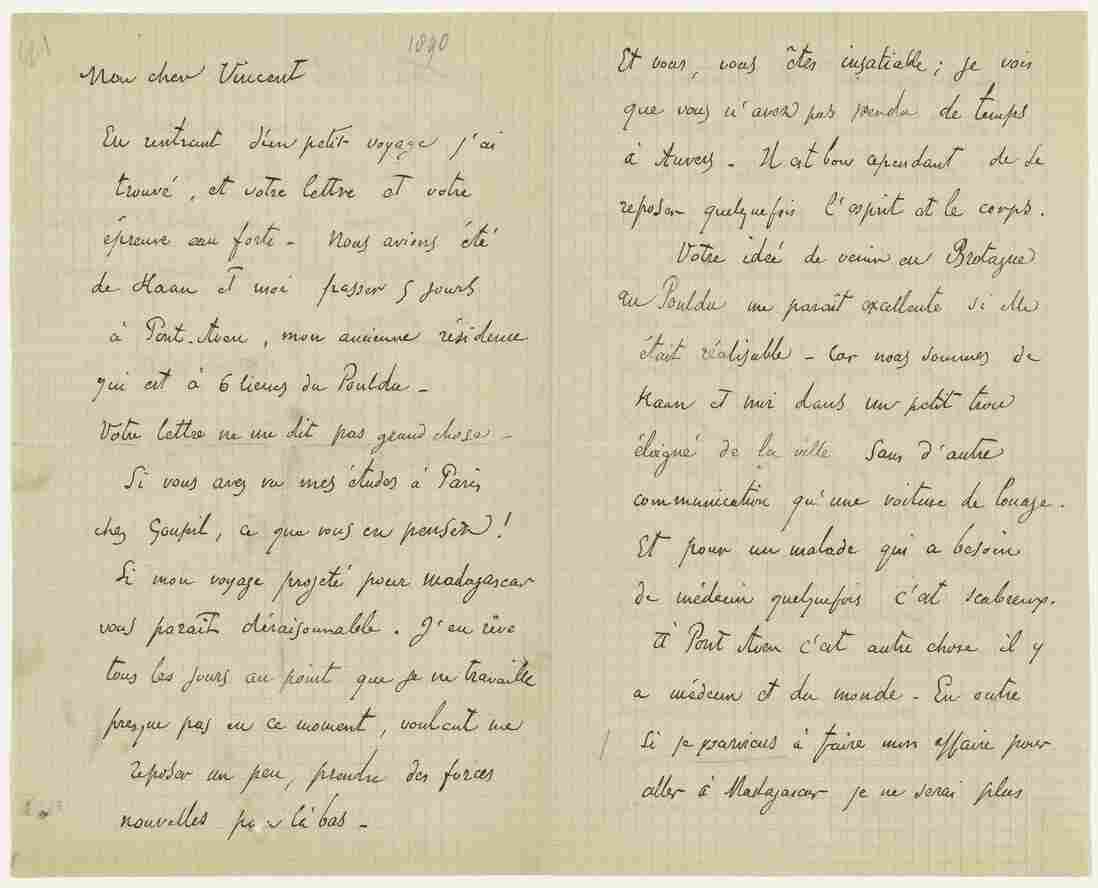 1890
Mon cher Vincent
En rentrant d'un petit voyage j'ai
trouvé, et votre lettre et votre
épreuve eau forte - Nous avions été
de Haan et moi passer 5 jours
à Pont-Aven, mon ancienne résidence
qui est à 6 lieues du Pouldu -
Votre lettre ne me dit pas grand chose -
Si vous avez vu mes études à Paris
chez Goupil, ce que vous en pensez !
Si mon voyage projeté pour Madagascar
vous paraît déraisonnable. J'en rêve
tous les jours au point que je ne travaille
presque pas en ce moment, voulant me
reposer un peu, prendre des forces
nouvelles pour là bas -
Et vous, vous êtes insatiable ; je vois
que vous n'avez pas perdu de temps
à Auvers - Il est bon cependant de se
reposer quelquefois l'esprit et le corps.
Votre idée de venir en Bretagne
au Pouldu me paraît excellente si elle
était réalisable - Car nous sommes de
Haan et moi dans un petit trou
éloigné de la ville sans d'autre
communication qu'une voiture de louage.
Et pour un malade qui a besoin
de médecin quelquefois c'est scabreux.
À Pont Aven c'est autre chose il y
a médecin et du monde - En outre
si je parviens à faire mon affaire pour
aller à Madagascar je ne serai plus